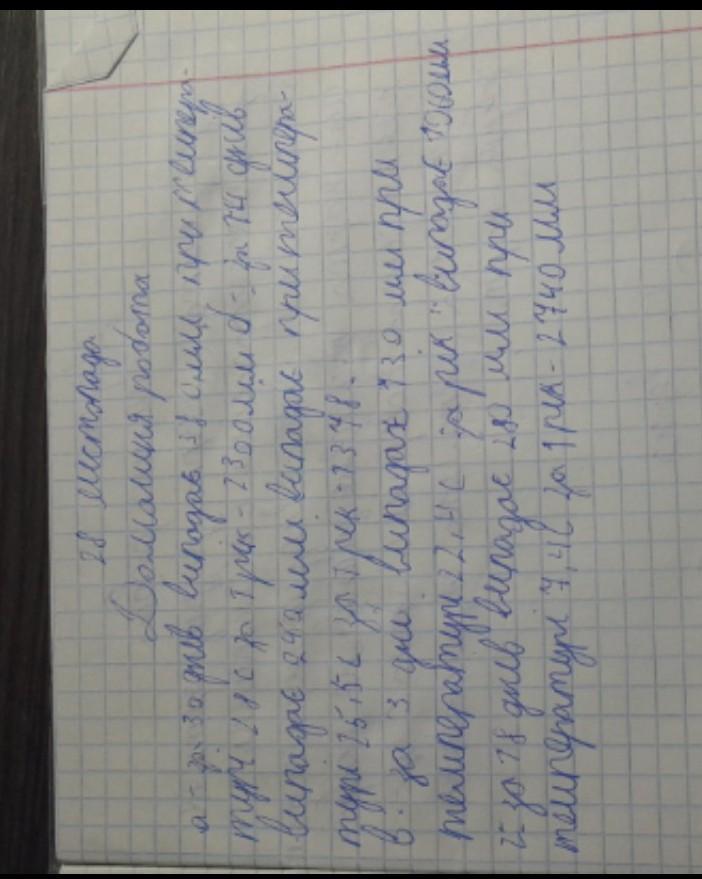 28 листопада
Домашня робота
а - за 30 днів випадає 38 мм, при темпера-
турі 28 С за 1 рік - 2300 мм б - за 14 днів
випадає 240 мм випадає при темпера-
турі 25,5 С за 1 рік - 2378.
в. за 3 дні випадає 130 мм при
температурі 22,4 С за рік випадає 1060мм
г за 18 днів випадає 280 мм при
температурі 7,4С за 1 рік - 2740 мм